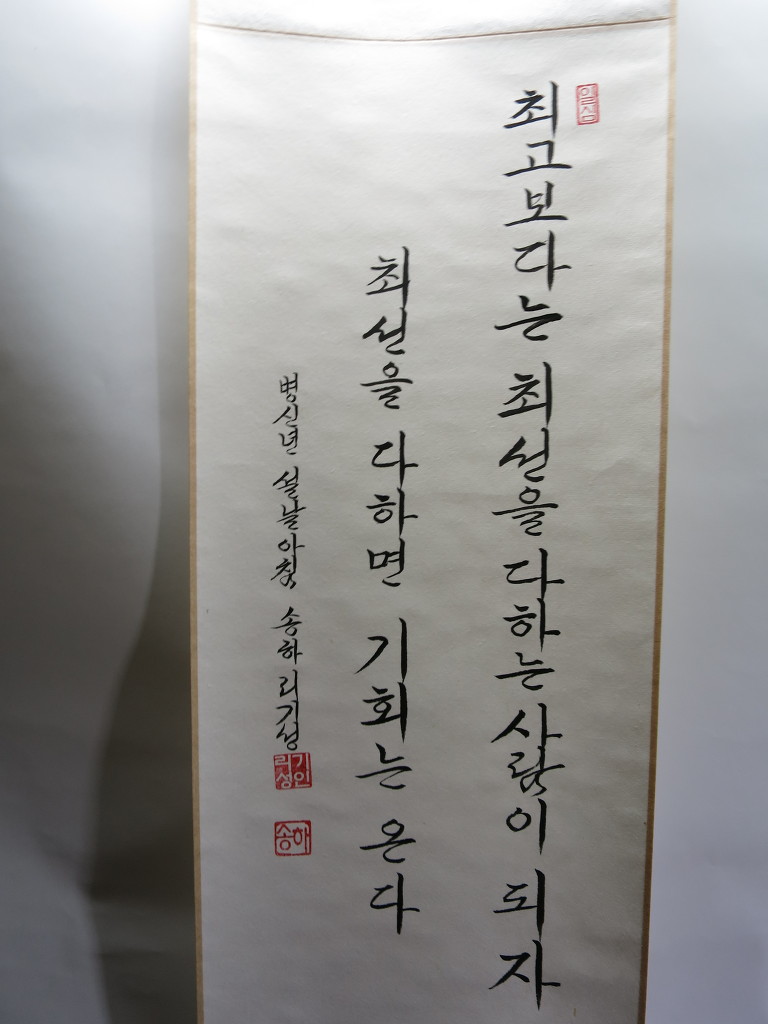 일심
최고보다는 최선을 다하는 사람이 되자
최선을 다하면 기회는 온다
병신년 설날아침 송하 리기성
리기성인
송하